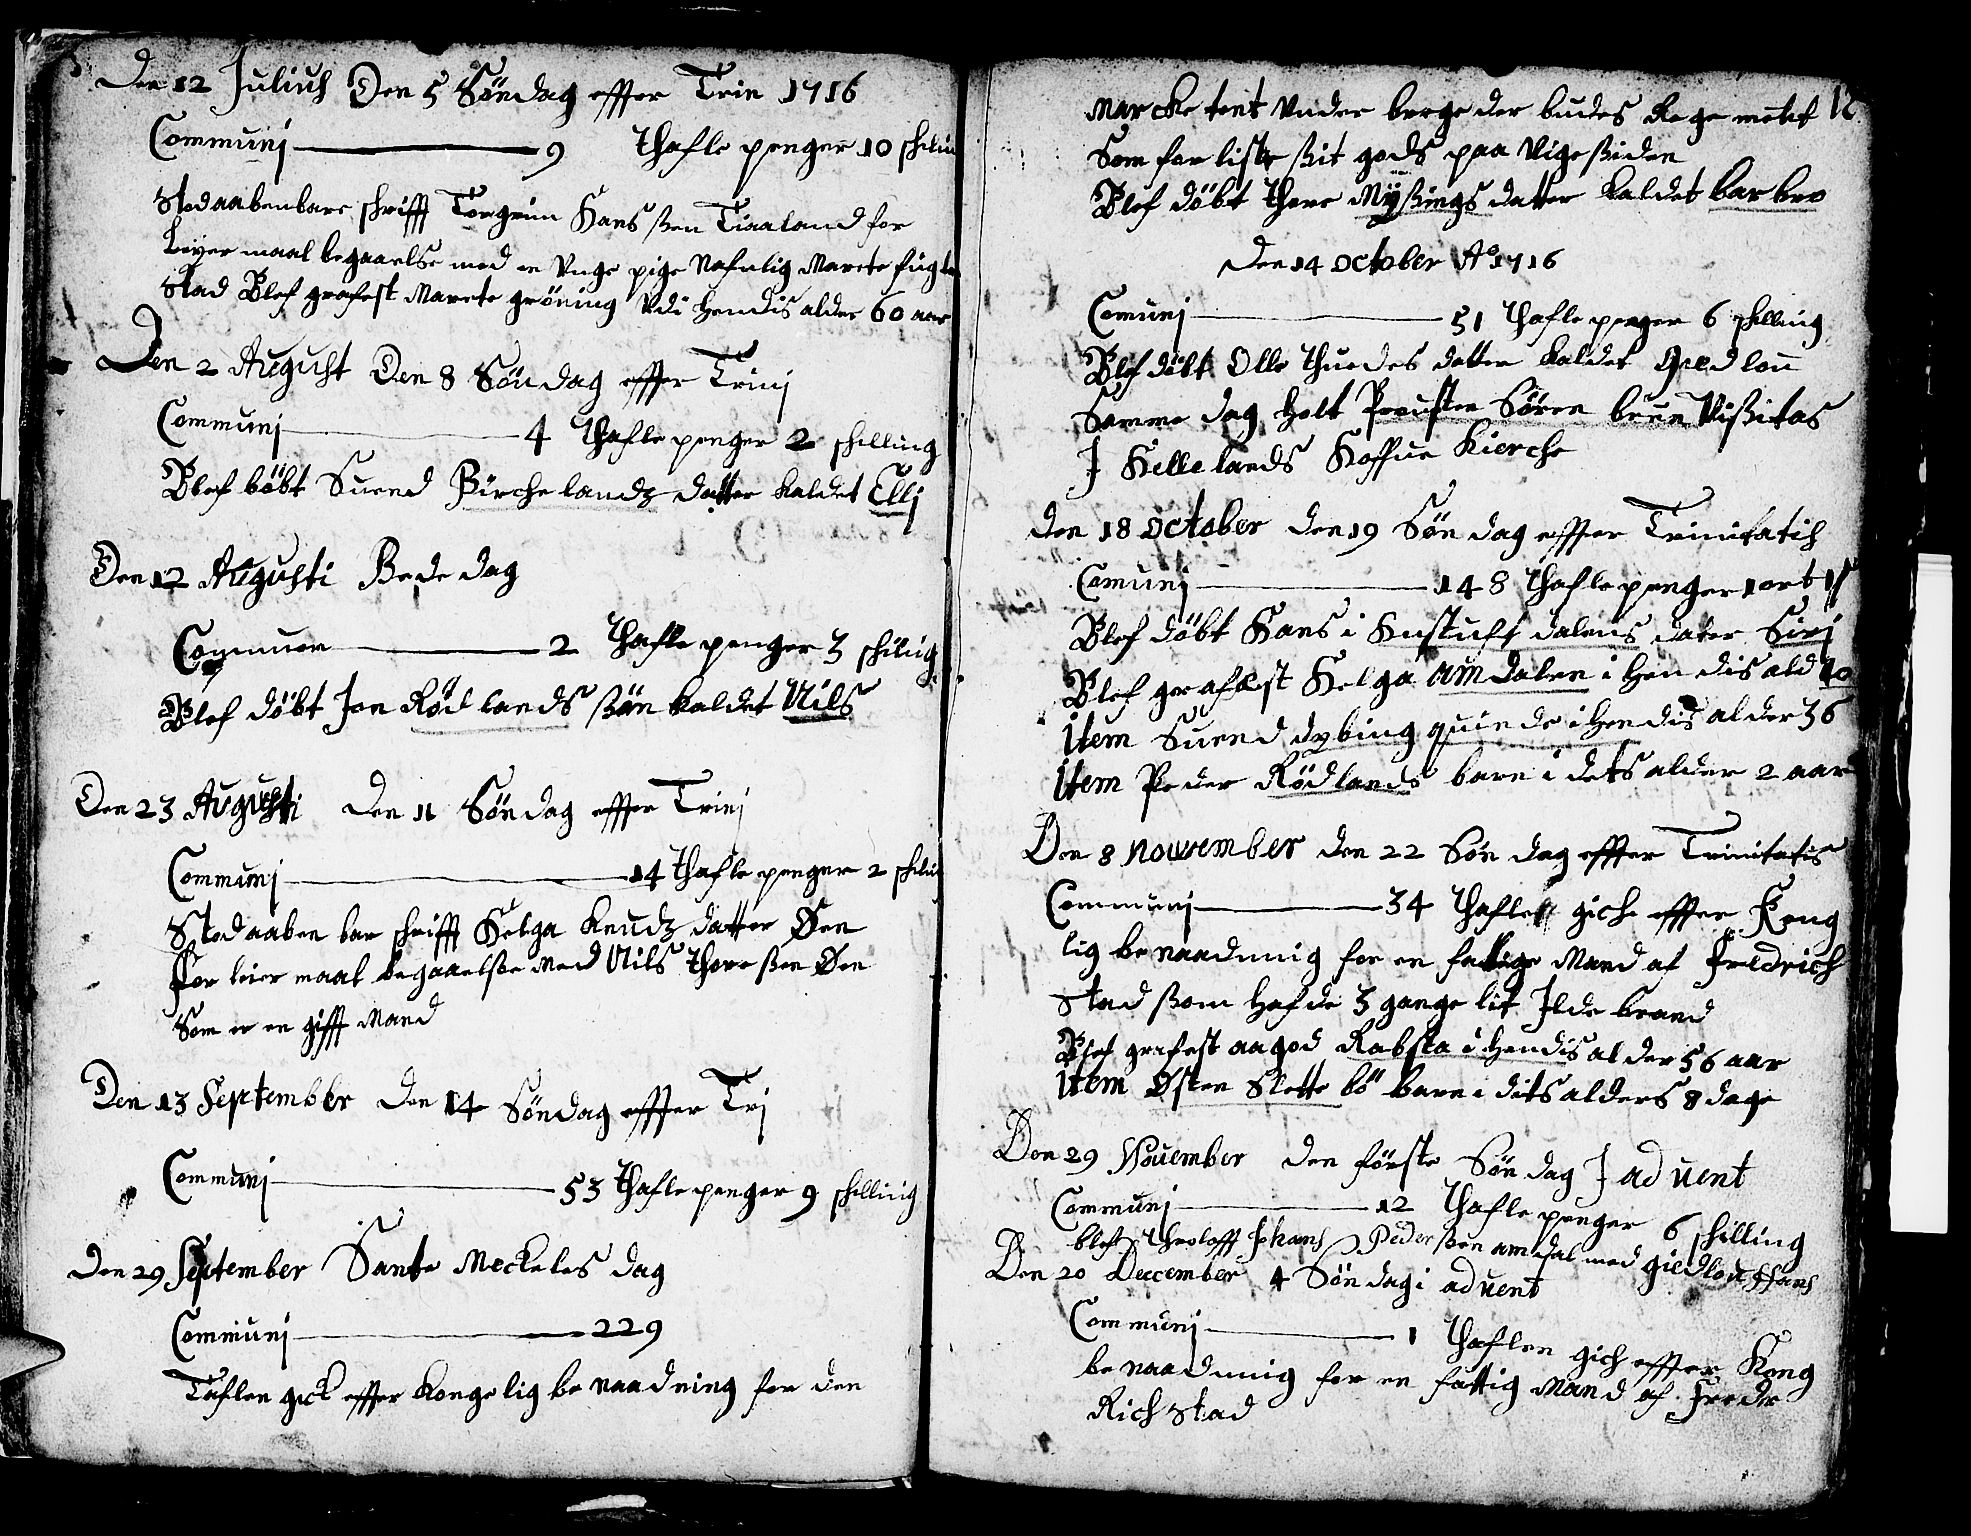 Den 12 Julius Den 5 Söndag effter Trin 1716
Communj 9 Thafle penger 10 schilin
Stod aabenbare schrifft Torgrim Hans ßen Tiaaland for
Leyer maal begaaelse med en Unge pige Nafnlig Marete fugle
stad Blef grafest Marete gröning Udi hendis alder 60 aar
Den 2 August Den 8 Söndag effter Trinj
Communj 4 Thafle penger 2 schilling
Blef böbt Suend Birche landz datter kaldet Ellj
Den 12 Augusti Bede dag
Communn 2 Thafle penger 3 schiling
Blef döbt Jon Rød lands ßøn kaldet Nils
Den 23 Augusti Den 11 Söndag effter Trinj
Communj 14 Thafle penger 2 schilin
Stod aaben bar schrifft Helga Knudz datter Øen
For leier maal begaaelße med Nils Thore ßen Øen
Som er en gifft Mand
Den 13 September Den 14 Söndag effter Trj
Communj 53 Thafle penger 9 schilling
Den 29 September Sante Meckeles dag
Communj 229
Taflen gick effter Kongelig be naadning for den
12
Marcke tent Under berge der budes Rege metet
Som for liste ßit gods paa Vige ßiden
Blef döbt Thore Myßings datter kaldet barbro
Den 14 October Ao 1716
Comunj 51 Thafle penger 6 schilling
Blef döbt Olle Thuedes datter kaldet Giedlou
Samme dag holt Prousten Sören bruun Vißitas
J Hellelands Hoffue Kierche
Den 18 October den 19 Sön dag effter Trinitatis
Comunj 148 Thafle penger 1 ort
Blef döbt Hans i Knstuff dalens dater Sirj
Blef grafest Helga Amdalen i hen dis ald 40
item Suend dybing quinde i hendis alder 36
item Peder Rödlands barn i dets alder 2 aar
Den 8 November den 22 Sön dag effter Trinitatis
Communj 34 Thaflen giche effter Kong
lig be naadning for en fattige Mand af Fredrich
stad ßom hafde 3 gange lit Jlde brand
Blef grafest aagod Rabsta i hendis alder 56 aar
item Østen Slette bö barn i dits alders 8 dage
Den 29 Nouember den förste Sön dag J aduent
Communj 12 Thafle penger 6 schilling
blef Theoloff Pederßen amdal med giedlou
Den 20 December 4 Söndag i aduent
Communj 1 Thaflen gich effter Kong
be naadning for en fattig Mand af Fredr
Rich stad